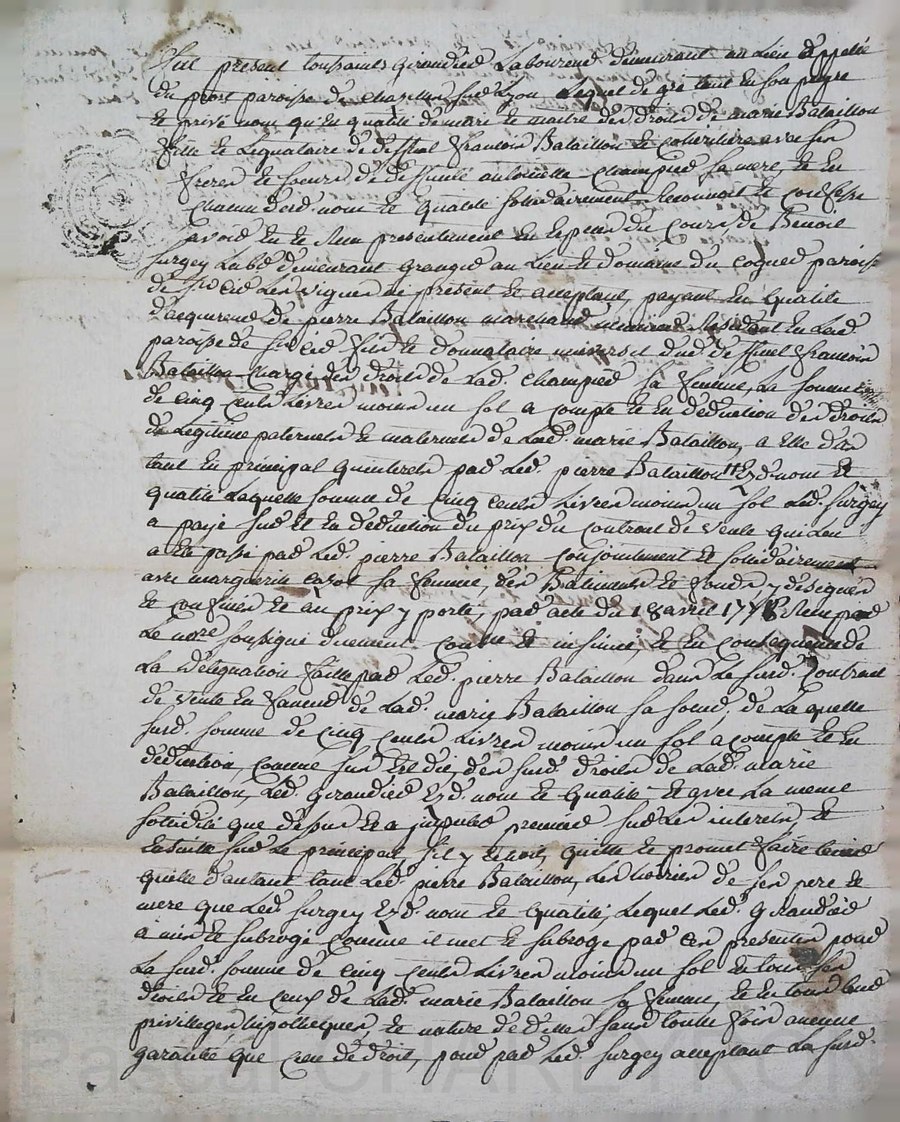 Fut present toussaints Girandier Laboureur demeurant au Lieu appellé
du prost paroisse de Chasillon sur Lyon Lequel de gré tant en son propre
et privé nom qu'en qualité de mari et maitre des Droits de marie Bataillon
fille et Legataire de deffunt françois Bataillon et cohéritiere avec ses
freres et soeurs de deffunte antoinette champier sa mere, et en
chacun desd. noms et qualité solidairement Reconnoit et confesse
avoir eu et Reçu presentement en espesses du cours de Benoit
Surgey Lab.r demeurant granger au Lieu et domaine du coquer paroisse
de S.t Cir Les vignes ici present et acceptant, payant en qualité
d'acquereur de pierre Bataillon marchand meunier Residant en Lad.
paroisse de St Cir fils et donnataire universel dud. deffunt françois
Bataillon chargé des droits de Lad. champier sa femme, La somme
de cinq cents Livres moins un sol a compte et en déduction des Droits
de Legitime paternels et maternels de Lad. marie Bataillon, a elle dûs
tant en principal qu'interets par Led. pierre Bataillon Esd. nom et
qualité Laquelle somme de cinq cents Livres moins un sol Led. Surgey
a payé sur et en déduction du prix du contrat de vente qui lui
a été passé par Led. pierre Bataillon conjointement et solidairement
avec marguerite sa femme, des Batiments et fonds y désignés
et confinés et au prix y porté, par acte du 18 avril 177 Reçu par
Le no.re soussigné duement et insinué, et en consequence de
La Délegation faitte par Led. pierre Bataillon dans Le susd. Contrat
de vente en faveur de Lad. marie Bataillon sa soeur, de La quelle
susd. somme de cinq cents Livres moins un sol a compte et en
déduction, comme sus est dit, des susd. droits de Lad. marie
Bataillon, Led. girandier Esd. nom et qualité et avec La meme
solidité que dessus et a imputer premier sur Les interets, et
ensuitte sur Le principal, s'il y echoit, quitte et promet faire tenir
quitte d'autant tant Led. pierre Bataillon, Les hoiries de ses pere et
mere que Led. Surgey Esd. nom et qualité, Lequel Led. girandier
a mis et subrogé comme il met et subroge par ces presentes pour
La susd. somme de cinq cents Livres moins un sol en tous ses
droits et en ceux de Lad. marie Bataillon sa femme, et en tous leurs
privilleges, hipotheques, et nature de dettes sans toutte fois aucune
garantie, que celle de droit, pour par Led. Surgey acceptant La susd.